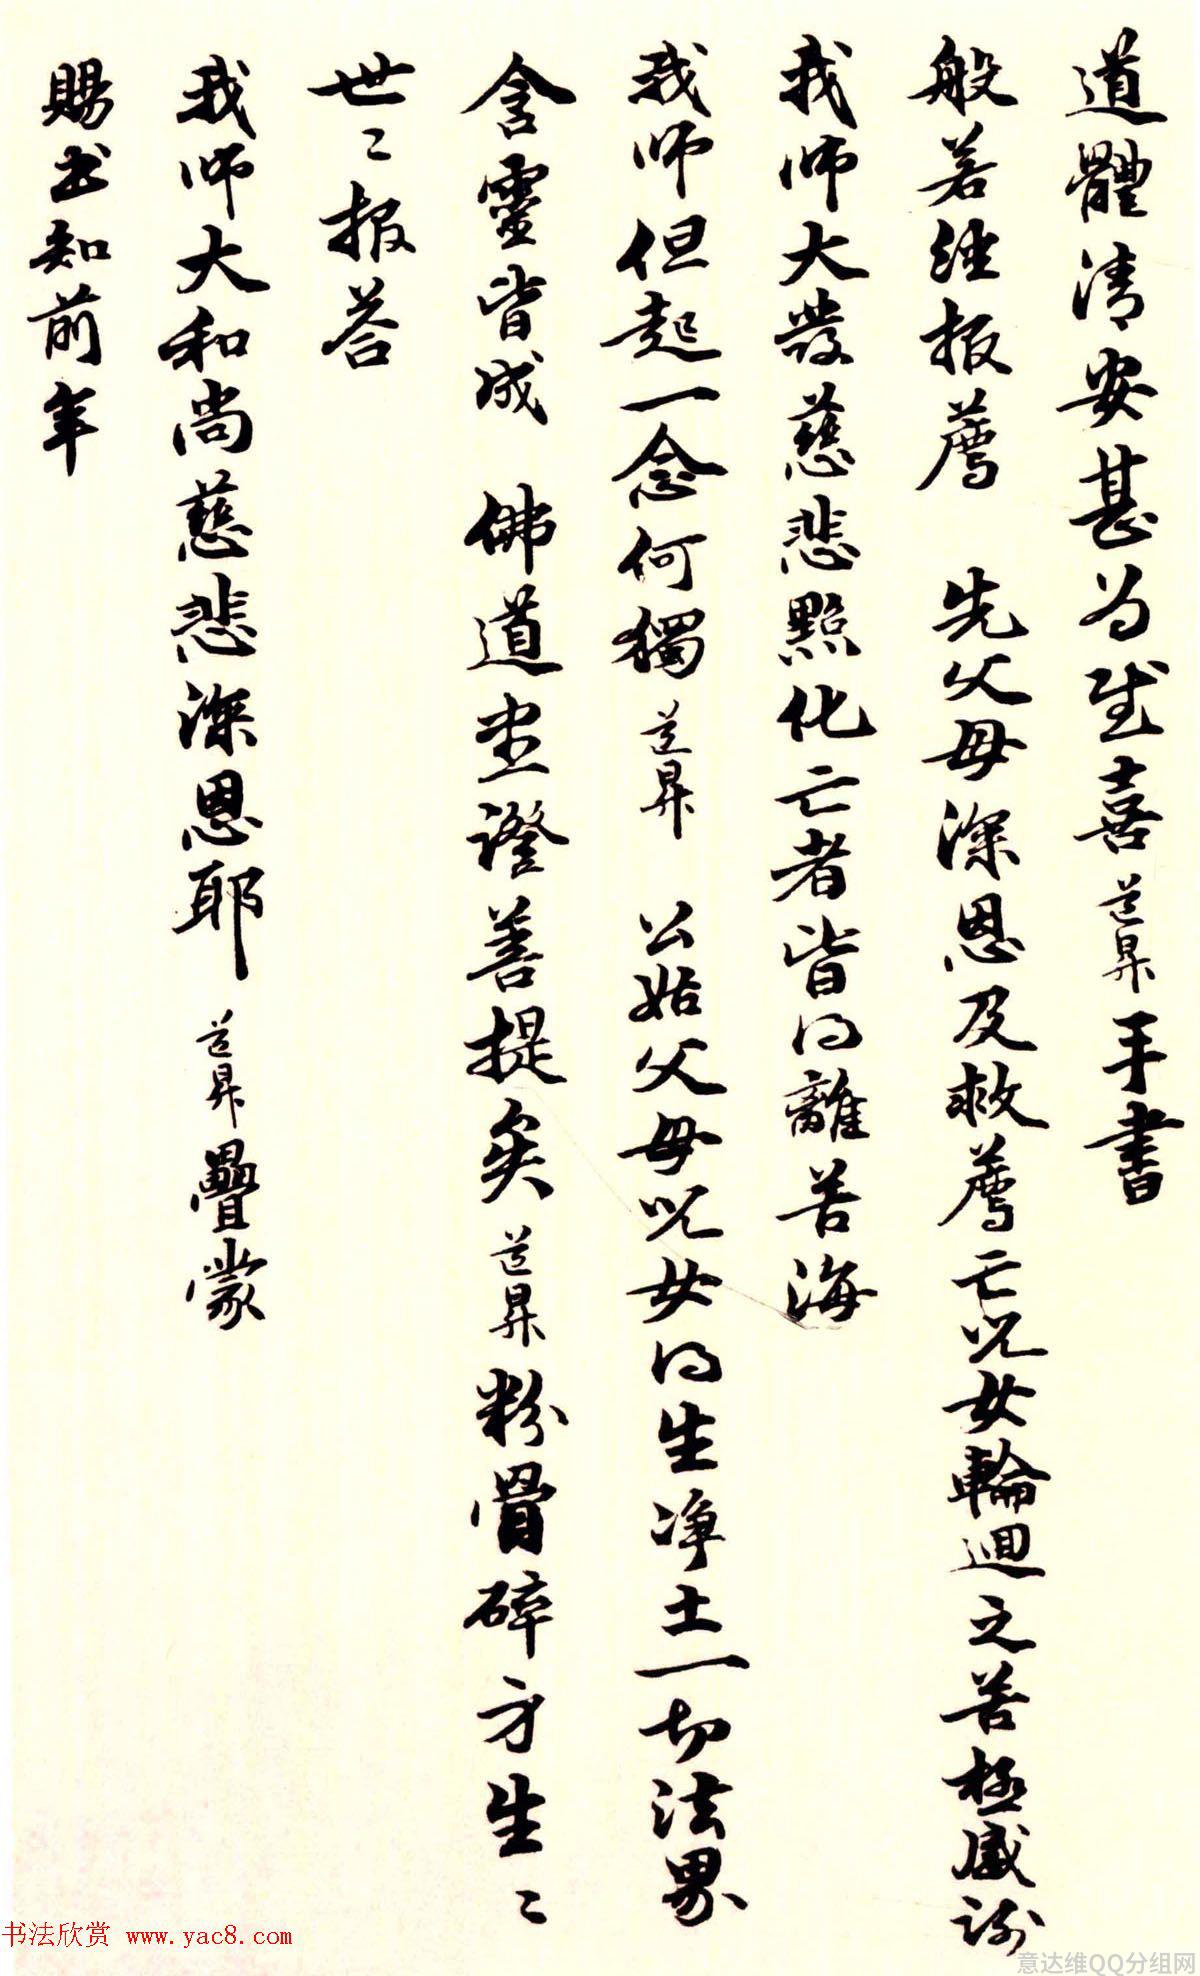 道體清安甚為感喜道昇手書
般若經報薦 先父母深恩及救薦亡児女輪迴之苦極感謝
我师大發慈悲點化亡者皆得離苦海
我师但起一念何獨道昇 公姑父母児女得生净土一切法界
含靈皆成 佛道坐證善提矣道昇粉骨碎身生〻
世〻報荅
我师大和尚慈悲深恩耶道昇疊蒙
賜书知前年
书法欣赏 www.yac8.com
意达维QQ分组网